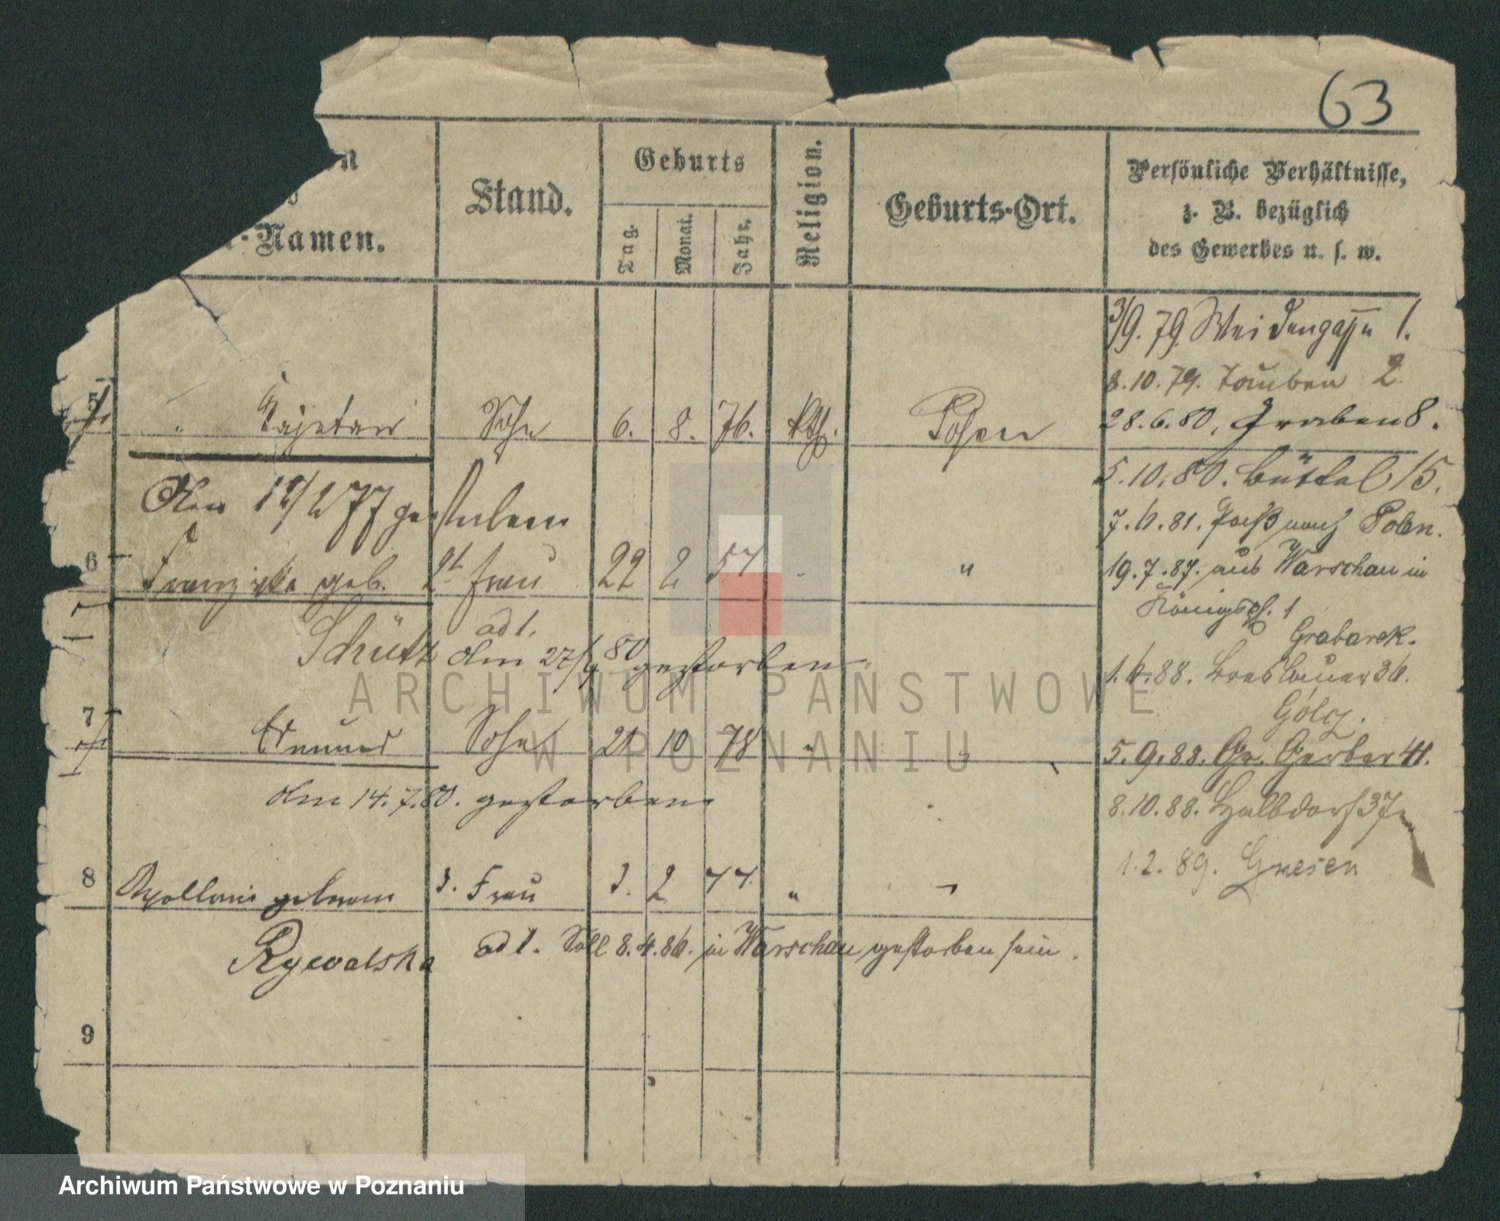 63
Namen.
Stand.
Geburts
Tag.
Monat.
Jahr.
Religion.
Geburts-Ort.
Persönliche Verhältnisse,
z. B. bezüglich
des Gewerbes u. s. w.
3/9. 79. Weidengasse 1.
8.10.79. Tauben 2
28.6.80. Graben 8.
5 " Cajetan Sohn 6. 8. 76. kth. Posen
5.10.80. Büttel 15.
gestorben
7.6.81. nach Polen.
6 Franziska geb. 2t Frau 22 2 57 "
19.7.87. aus Warschau in
Königspl. 1
Schütz ad 1. Am 27/9 80 gestorben
Grabarek.
1.6.88. Breslauer 36.
Gólcz.
7 Sohn 21 10 78 "
5.9.88. Gr. Gerber 41.
am 14.7.80. gestorben
8.10.88. Halbdorf 37
8 geborene 3. Frau 3. 2 "
1.2.89. Gnesen
Rywalska ad 1. Soll 8.4.86. in Warschau gestorben sein.
9
ARCHIWUM PAŃSTWOWE
W POZNANIU
Archiwum Państwowe w Poznaniu